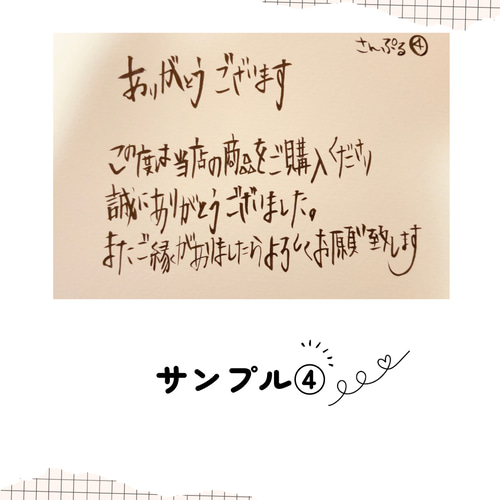 さんぷる④
ありがとうございます
この度は当店の商品をご購入くださり
誠にありがとうございました。
またご縁がありましたらよろしくお願い致します
サンプル④